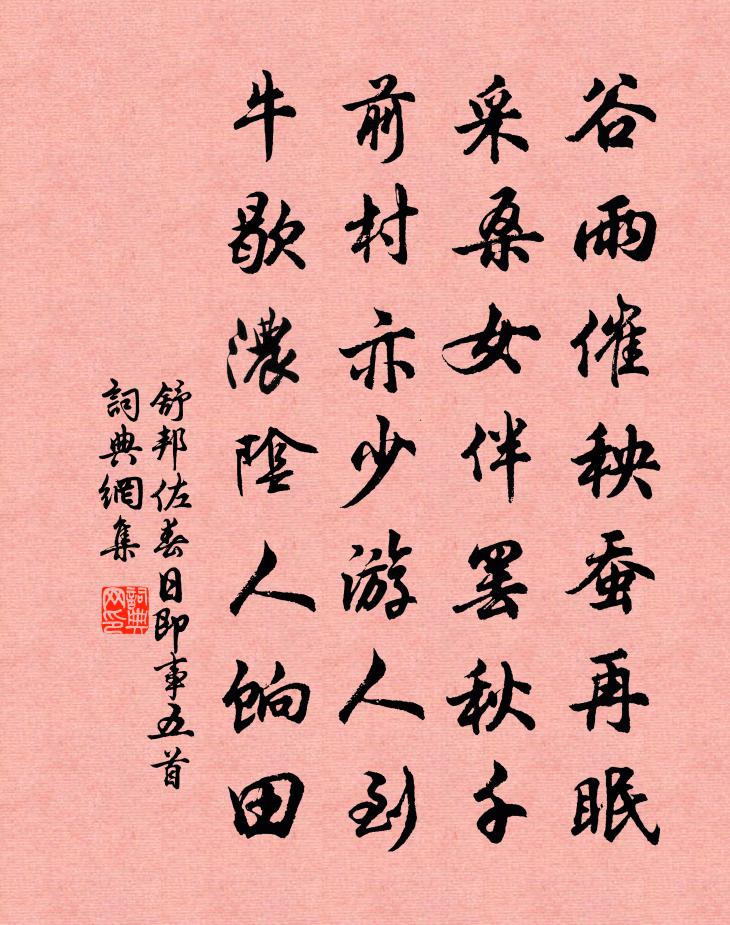 谷雨催秧蚕再眠
采桑女伴罢秋千
前村亦少游人到
牛歇濃陰人餉田
舒邦佐春日即事五首
詞典網集
詞典网印